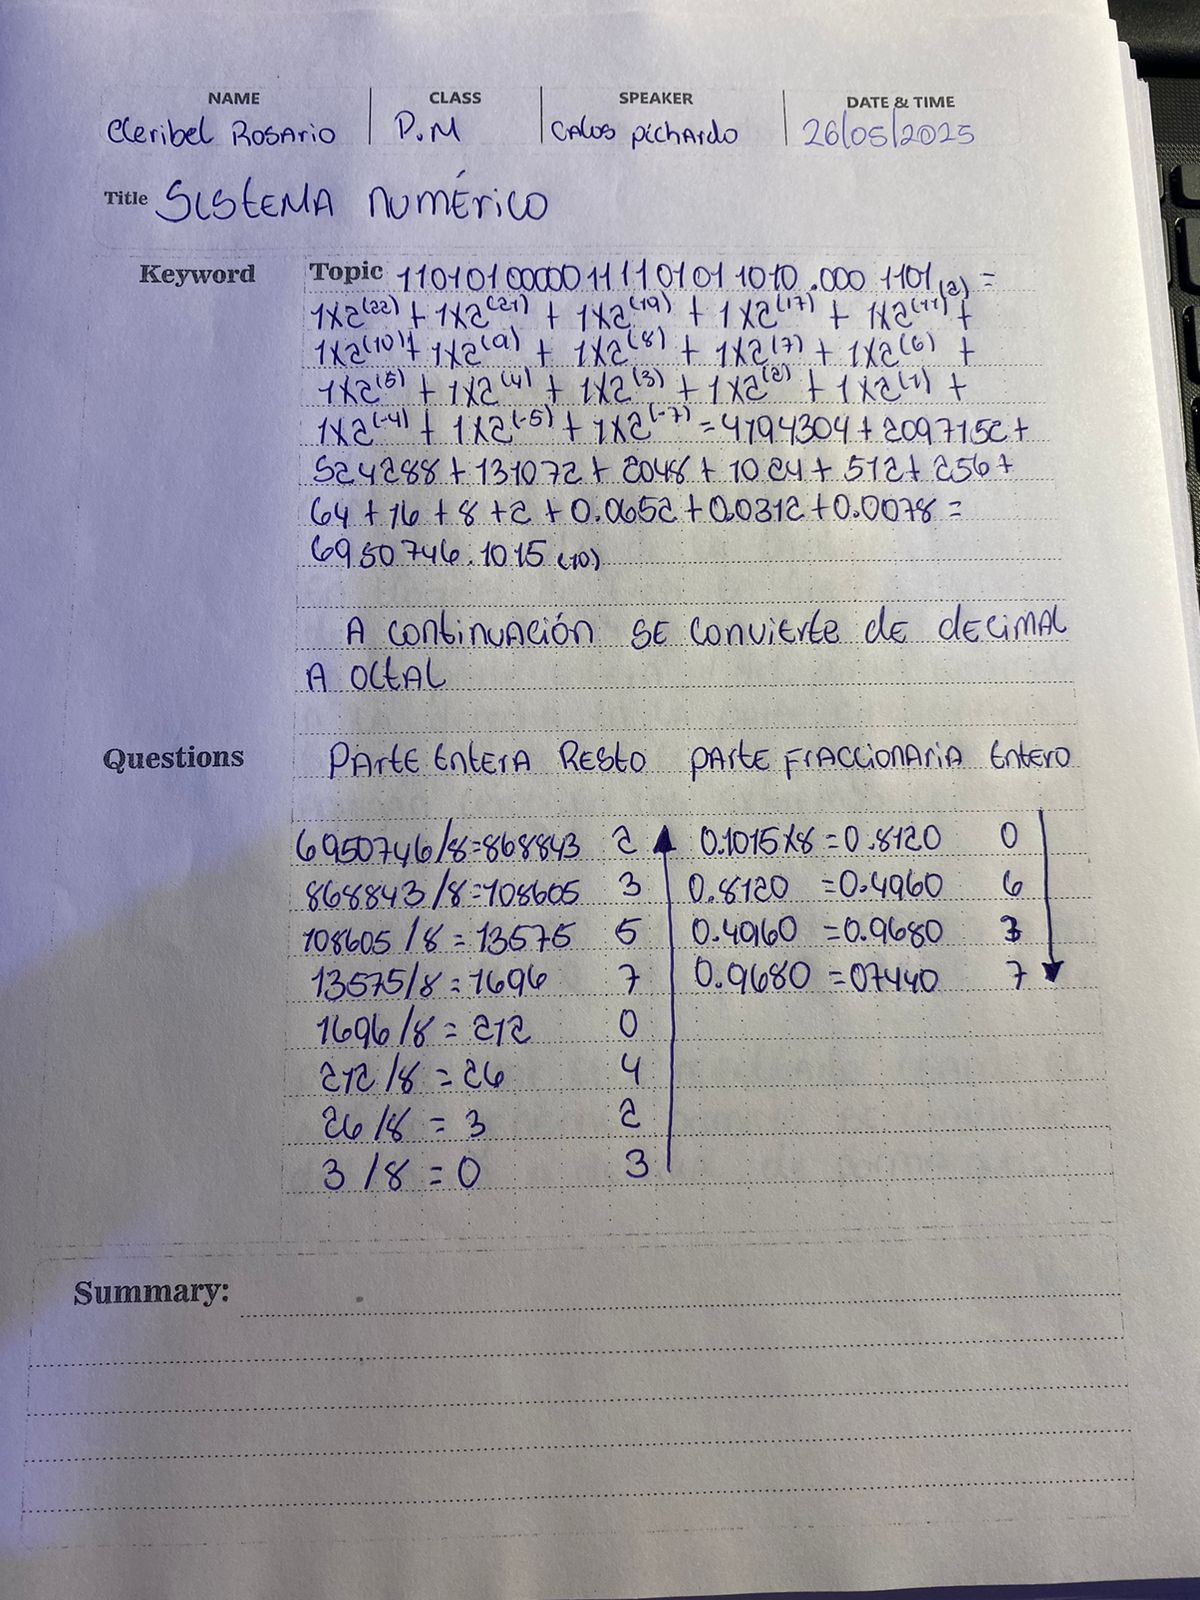 NAME CLASS SPEAKER DATE & TIME
Cleribel Rosario D.M Calos Pichardo 26/05/2025
Title Sistema numérico
Keyword Topic 11010100000111110101 1 1010 .000 1101(2) =
1x2(22) + 1x2(21) + 1x2(19) + 1x2(17) + 1x2(11) +
1x2(10) + 1x2(9) + 1x2(8) + 1x2(7) + 1x2(6) +
1x2(5) + 1x2(4) + 1x2(3) + 1x2(2) + 1x2(1) +
1x2(-4) + 1x2(-5) + 1x2(-7) = 4194304 + 2097152 +
524288 + 131072 + 2048 + 1024 + 512 + 256 +
64 + 16 + 8 + 2 + 0.0652 + 0.0312 + 0.0078 =
6950746.1015 (10)
A continuación se convierte de decimal
a octal
Questions Parte entera Resto Parte fraccionaria Entero
6950746/8=868843 2 0.1015x8=0.8120 0
868843/8=108605 3 0.8120 =0.4960 6
108605/8=13575 5 0.4960 =0.9680 3
13575/8=1696 7 0.9680 =07440 7
1696/8=212 0
212/8=26 4
26/8=3 2
3/8=0 3
Summary: